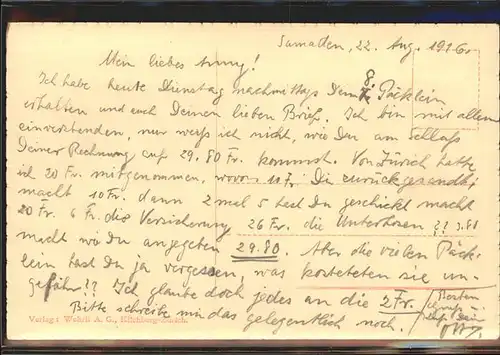 Samaden, 22. Aug. 1916.
Mein liebes Anny!
Ich habe heute Dienstag nachmittags Dein 8. Päcklein
erhalten und auch Deinen lieben Brief. Ich bin mit allem
einverstanden, nur weiss ich nicht, wie Du am
Deiner Rechnung auf 29.80 Fr. kommst. Von Zürich hatte
ich 20 Fr. mitgenommen, wovon 10 Fr. Dir zurückgesandt,
macht 10 Fr. dann 2 mal 5 hast Du geschickt macht
20 Fr. 6 Fr. die Versicherung 26 Fr. die Unterhosen ?? 3.80
macht wie Du angegeben 29.80. Aber die vielen Päck-
lein hast Du ja vergessen, was kosteten sie un-
gefähr?? Ich glaube doch jedes an die 2 Fr.
Bitte schreibe mir das gelegentlich noch.
Besten
Gruss
Dein
Verlag: Wehrli A. G., Kilchberg-Zürich.